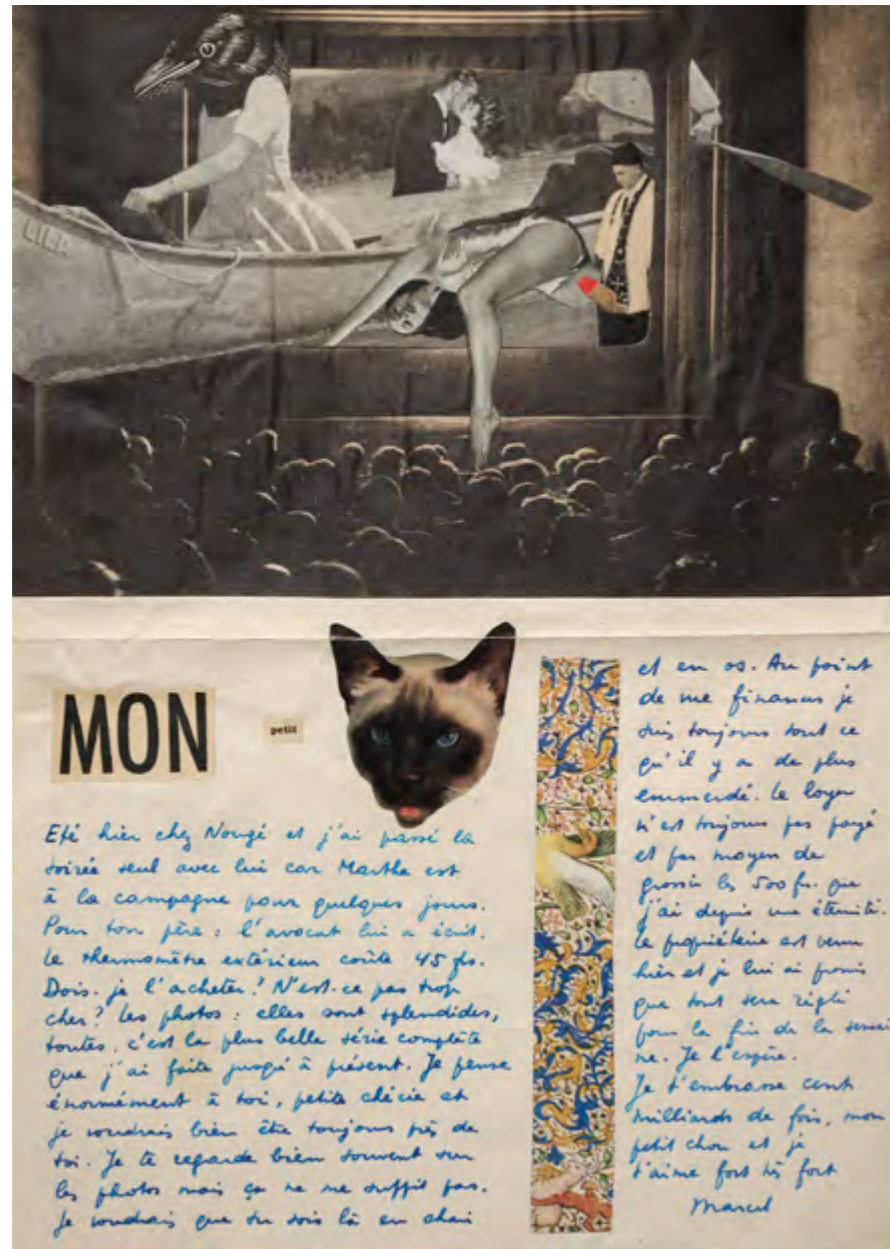 LILI
MON
petit
Eté hier chez Nougé et j'ai passé la
soirée seul avec lui car Marthe est
à la campagne pour quelques jours.
Pour ton père : l'avocat lui a écrit.
Le thermomètre extérieur coûte 45 frs.
Dois-je l'acheter ? N'est-ce pas trop
cher ? Les photos : elles sont splendides,
toutes, c'est la plus belle série complète
que j'ai faite jusqu'à présent. Je pense
énormément à toi, petite chérie et
je voudrais bien être toujours près de
toi. Je te regarde bien souvent sur
les photos mais ça ne me suffit pas.
Je voudrais que tu sois là en chair
et en os. Au point
de vue finances je
suis toujours tout ce
qu'il y a de plus
emmerdé. Le loyer
n'est toujours pas payé
et pas moyen de
grossir les 500 frs. que
j'ai depuis une éternité.
Le propriétaire est venu
hier et je lui ai promis
que tout sera réglé
pour la fin de la semai
ne. Je l'espère.
Je t'embrasse cent
milliards de fois, mon
petit chou et je
t'aime fort très fort
Marcel